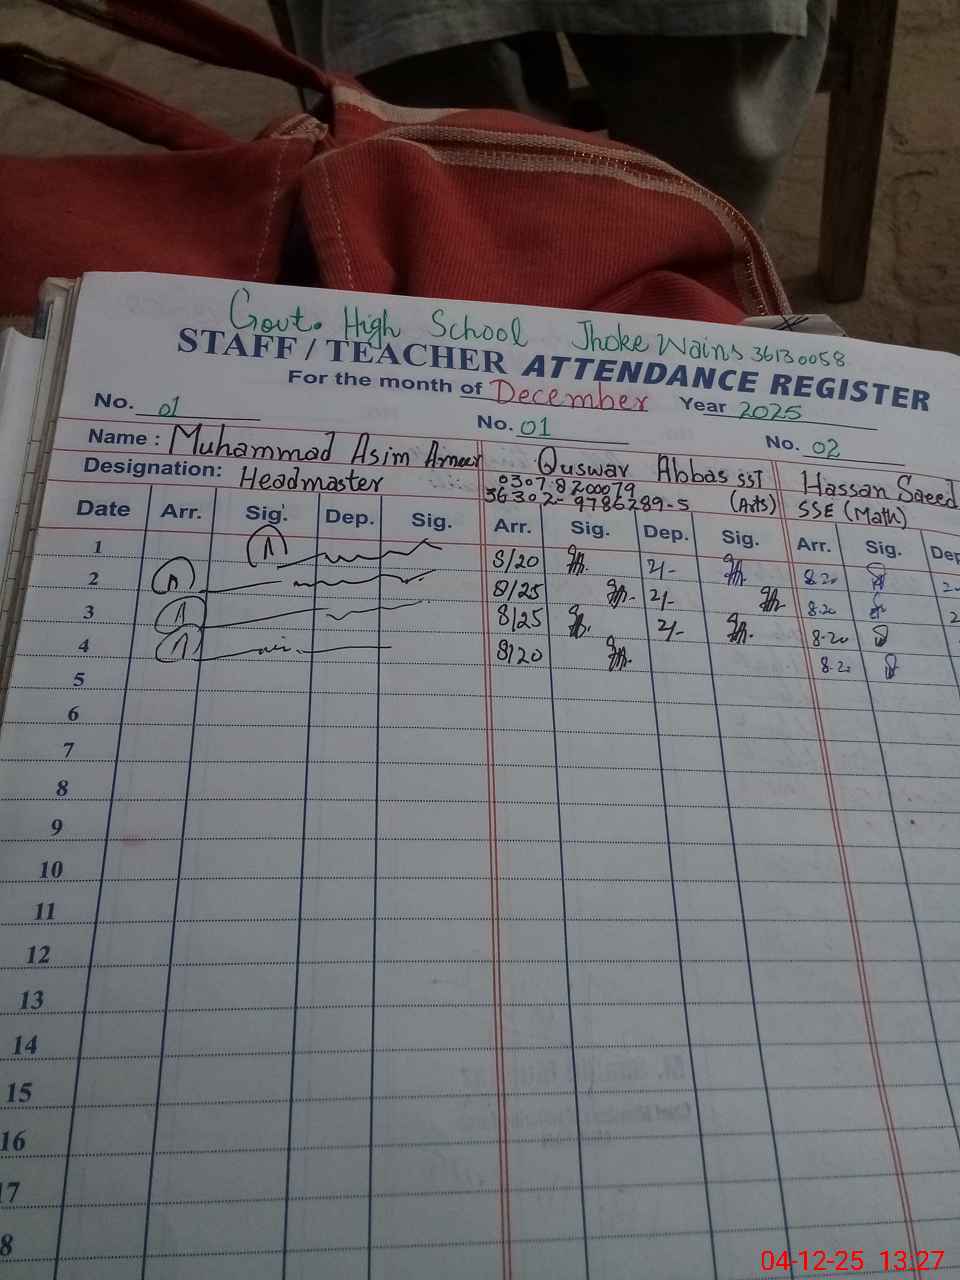 Govt. High School Jhoke Wains 36130058
STAFF / TEACHER ATTENDANCE REGISTER
For the month of December Year 2025
No. 01 No. 01 No. 02
Name : Muhammad Asim Ameer Quswar Abbas SST Hassan Saeed
Designation: Headmaster 0307-8200079 SSE (Math)
36302-9786289-5 (Arts)
Date Arr. Sig. Dep. Sig. Arr. Sig. Dep. Sig. Arr. Sig. Dep
1 8/20 2/- 8.20
2 8/25 2/- 8.20
3 8/25 2/- 8.20
4 8/20 8.20
5
6
7
8
9
10
11
12
13
14
15
16
17
8
04-12-25 13:27